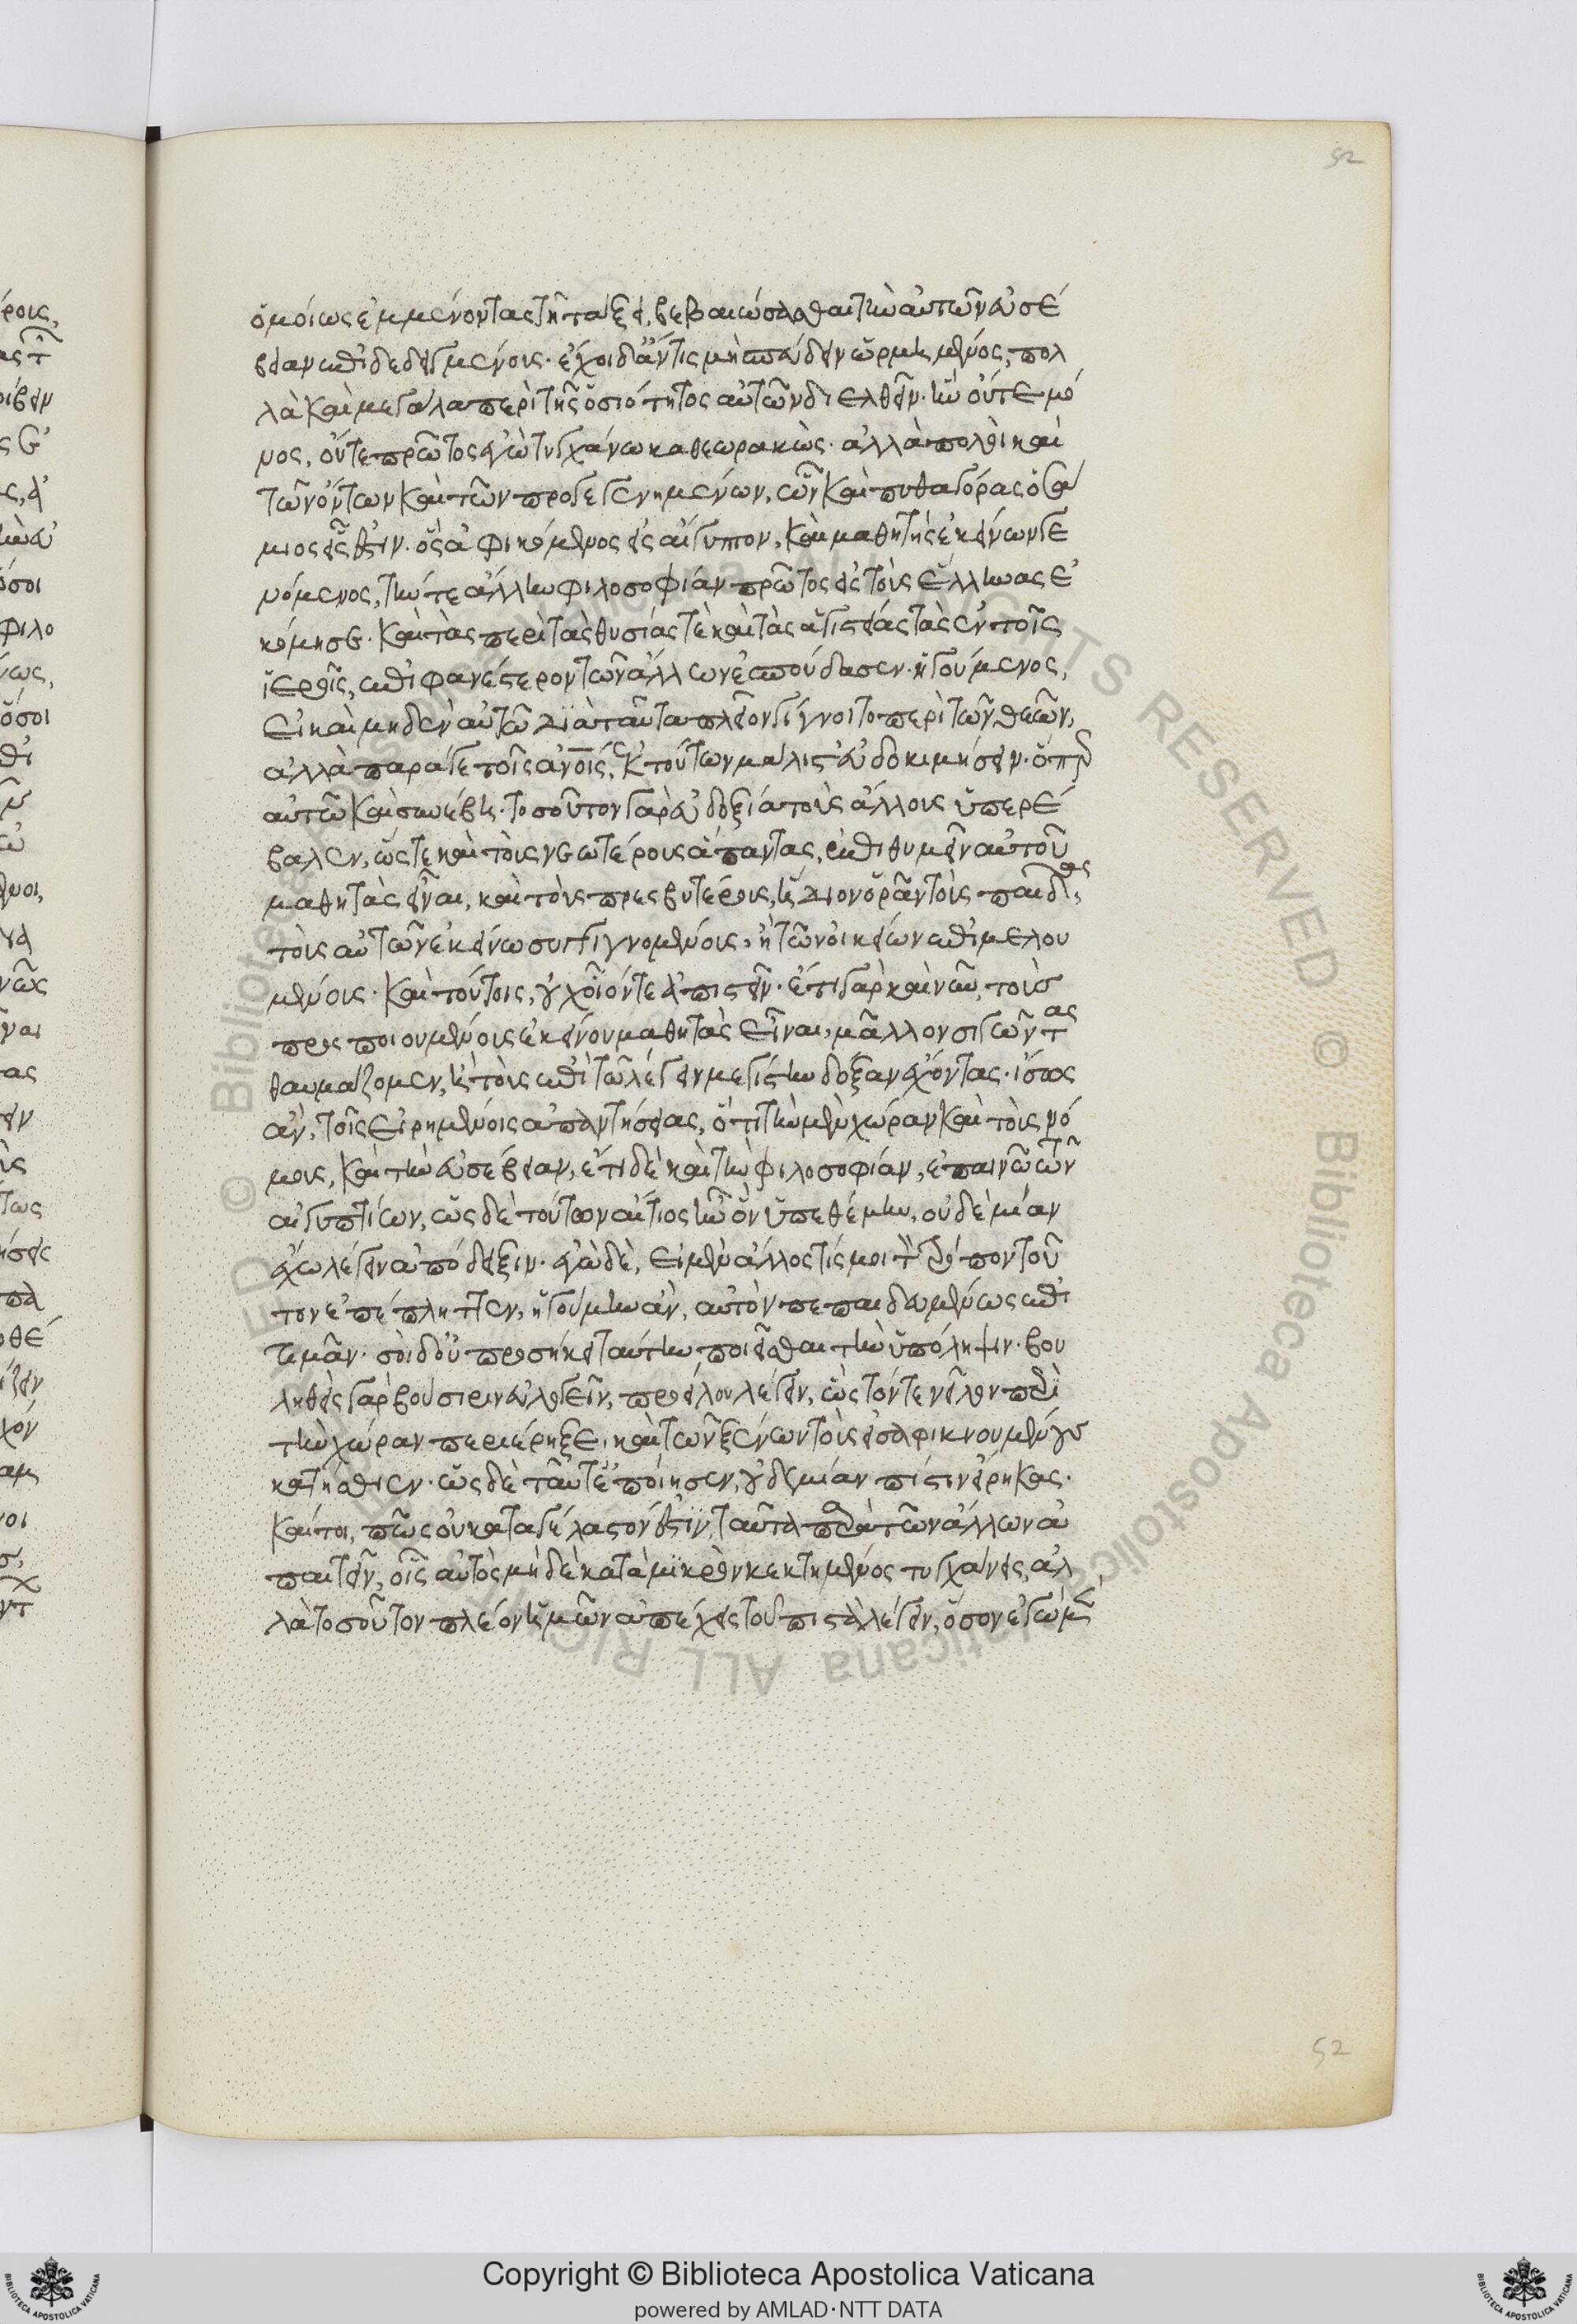 52
ὁμοίως ἐμμένοντας τῆ τάξει, βεβαιώσασθαι τὴν αὐτῶν εὐσέ
βειαν ἐπιδεδειγμένοις. ἔχοι δ' ἄν τις μὴ σπεύδειν ὡρμημένος, πολ
λὰ καὶ μεγάλα περὶ τῆς ὁσιότητος αὐτῶν διελθεῖν. ἣν οὔτε μό
νος, οὔτε πρῶτος ἐγὼ τυγχάνω καθεωρακὼς. ἀλλὰ πολλοὶ καὶ
τῶν ὄντων καὶ τῶν προγεγενημένων, ὧν καὶ πυθαγόρας ὁ σά
μιος εἷς ἐστιν. ὃς ἀφικόμενος εἰς αἴγυπτον, καὶ μαθητὴς ἐκείνων γε
νόμενος, τήν τε ἄλλην φιλοσοφίαν πρῶτος εἰς τοὺς ἕλληνας ἐ
κόμισε. καὶ τὰς περὶ τὰς θυσίας τὲ καὶ τὰς ἁγιστείας τὰς ἐν τοῖς
ἱεροῖς, ἐπιφανέστερον τῶν ἄλλων ἐσπούδασεν. ἡγούμενος,
εἰ καὶ μηδὲν αὐτῶ διὰ ταῦτα πλέον γίγνοιτο περὶ τῶν θεῶν,
ἀλλὰ παρά γε τοῖς ἀνοις, ἐκ τούτων μάλιστ' εὐδοκιμήσειν. ὅπερ
αὐτῶ καὶ συνέβη. τοσοῦτον γὰρ εὐδοξία τοὺς ἄλλους ὑπερέ
βαλεν, ὥστε καὶ τοὺς νεωτέρους ἅπαντας, ἐπιθυμεῖν αὐτοῦ
μαθητὰς εἶναι, καὶ τοὺς πρεσβυτέρους, ἥδιον ὁρᾶν τοὺς παῖδας
τοὺς αὐτῶν ἐκείνω συγγιγνομένους, ἢ τῶν οἰκείων ἐπιμελου
μένους. καὶ τούτοις, οὐχ οἷόν τε ἀπιστεῖν. ἔτι γὰρ καὶ νῦν, τοὺς
προσποιουμένους ἐκείνου μαθητὰς εἶναι, μᾶλλον σιγῶντας
θαυμάζομεν, ἢ τοὺς ἐπὶ τῶ λέγειν μεγίστην δόξαν ἔχοντας. ἴσως
ἂν, τοῖς εἰρημένοις ἀπαντήσειας, ὅτι τὴν μὲν χώραν καὶ τοὺς νό
μους, καὶ τὴν εὐσέβειαν, ἔτι δὲ καὶ τὴν φιλοσοφίαν, ἐπαινῶ τῶν
αἰγυπτίων, ὡς δὲ τούτων αἴτιος ἦν ὃν ὑπεθέμην, οὐδεμίαν
ἔχω λέγειν ἀπόδειξιν. ἐγὼ δὲ, εἰ μὲν ἄλλος τίς μοι τὸν τρόπον τοῦ
τον ἐπέπληττεν, ἡγούμην ἂν, αὐτὸν πεπαιδευμένως ἐπι
τιμᾶν. σοὶ δ' οὐ προσήκει ταύτην ποιεῖσθαι τὴν ὑπόληψιν. βου
ληθεὶς γὰρ βούσιριν εὐλογεῖν, προείλου λέγειν, ὡς τόν τε νεῖλον περὶ
τὴν χώραν περιέρρηξε, καὶ τῶν ξένων τοὺς εἰσαφικνουμένους
κατήσθιεν. ὡς δὲ ταῦτ' ἐποίησεν, οὐδεμίαν πίστιν εἴρηκας.
καίτοι, πῶς οὐ καταγέλαστόν ἐστιν, ταῦτα παρὰ τῶν ἄλλων ἀ
παιτεῖν, οἷς αὐτὸς μὴ δὲ κατὰ μικρὸν κεκτημένος τυγχάνεις, ἀλ
λὰ τοσοῦτον πλέον ἡμῶν ἀπέχεις τοῦ πιστὰ λέγειν, ὅσον ἐγὼ μὲν
52
© Biblioteca Apostolica Vaticana ALL RIGHTS RESERVED © Biblioteca Apostolica Vaticana ALL RIGHTS RESERVED
Copyright © Biblioteca Apostolica Vaticana
powered by AMLAD·NTT DATA